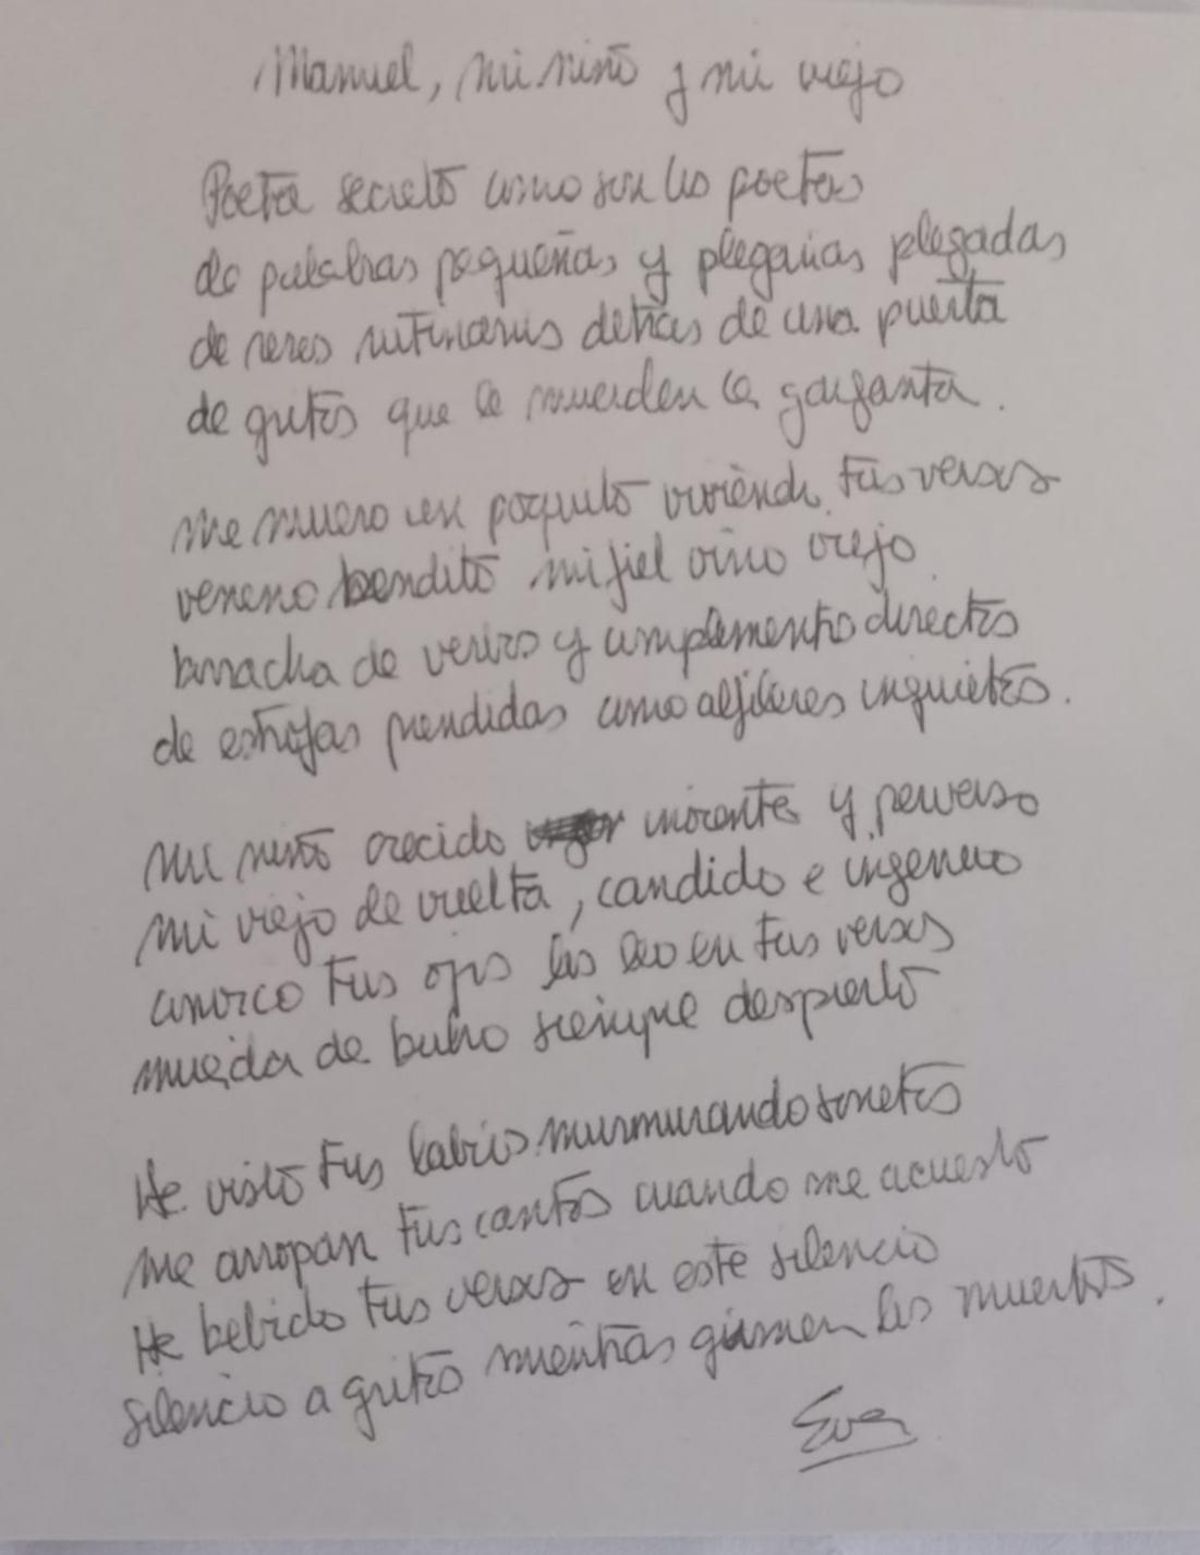 Manuel, mi niño y mi viejo
Poeta secreto como son los poetas
de palabras pequeñas y plegarias plegadas
de seres rutinarios detrás de una puerta
de gritos que le muerden la garganta.
Me muero un poquito viviendo tus versos
veneno bendito mi fiel vino viejo
borracha de versos y complementos directos
de estrofas prendidas como alfileres inquietos.
Mi niño crecido inocente y perverso
mi viejo de vuelta, candido e ingenuo
conozco tus ojos los leo en tus versos
mueda de buho siempre despierto
He visto tus labios murmurando sonetos
me arropan tus cantos cuando me acuesto
He bebido tus versos en este silencio
silencio a gritos mientras gimen los muertos.
Eva